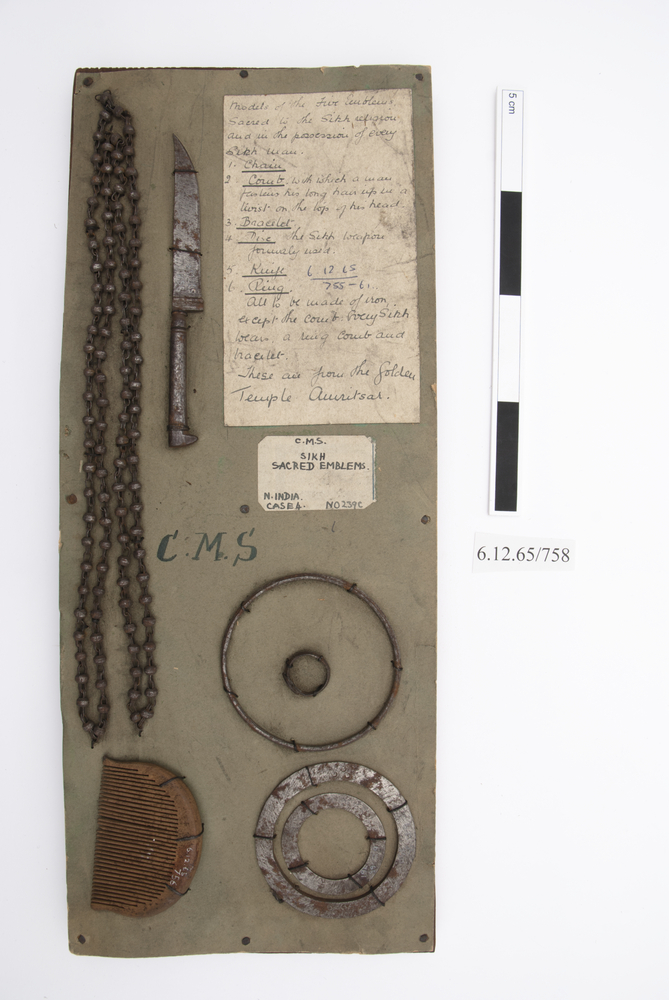 Models of the Five Emblems
Sacred to the Sikh religion
and in the possession of every
Sikh man.
1. Chain
2. Comb. with which a man
fastens his long hair up in a
twist on the top of his head.
3. Bracelet.
4. The Sikh weapon
formerly used.
5. Knife 6 12.65
6. Ring. 755-61.
All to be made of iron,
except the comb. Every Sikh
wears a ring comb and
bracelet.
These are from the Golden
Temple Amritsar.
C.M.S.
SIKH
SACRED EMBLEMS.
N. INDIA.
CASE 4. NO 239C
C.M.S
5 cm
6.12.65/758